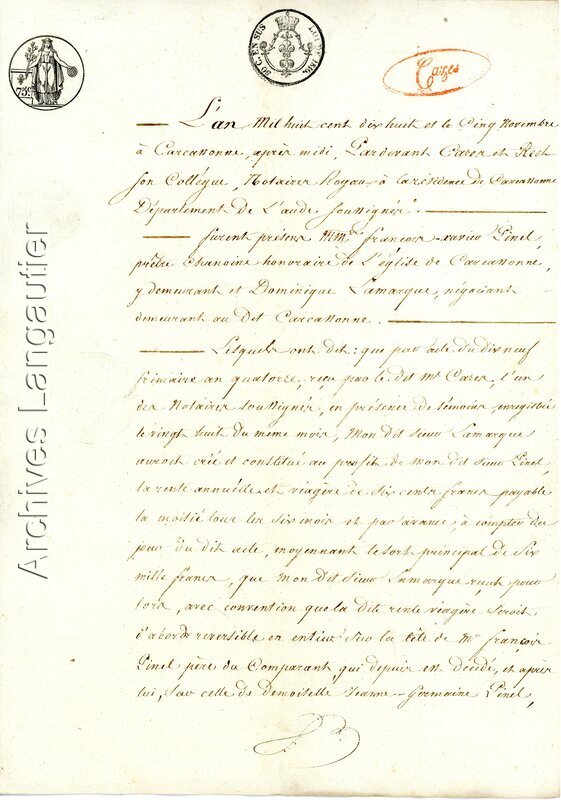 75c
50 C. EN SUS
LOI DE 1816.
Cazes
L'an Mil huit cent dix huit et le Cinq Novembre
à Carcassonne, après midi, Pardevant Cazes et Rech
son Collégue, Notaires Royaux à la résidence de Carcassonne
Département de L'aude soussignés.
furent présens MMrs françois-xavier Pinel,
prêtre chanoine honoraire de L'église de Carcassonne,
y demeurant et Dominique Lamarque, négociant
demeurant au dit Carcassonne.
Lesquels ont dit : que par acte du dix neuf
frimaire an quatorze, reçu par le dit Mr Cazes, l'un
des Notaires soussignés, en présence de témoins, enregistré
le vingt huit du même mois, Mon dit sieur Lamarque
auroit créé et constitué au profit de mon dit sieur Pinel,
la rente annuelle et viagère de six cents francs payable
la moitié tous les six mois et par avance, à compter du
jour du dit acte, moyennant le sort principal de Six
mille francs, que Mon dit sieur Lamarque reçut pour
lors, avec convention que la dite rente viagère seroit
d'abord reversible en entier sur la tête de Mr françois
Pinel père du Comparant, qui depuis est décédé, et après
lui, sur celle de demoiselle Jeanne-Germaine Pinel,
Archives Langautier